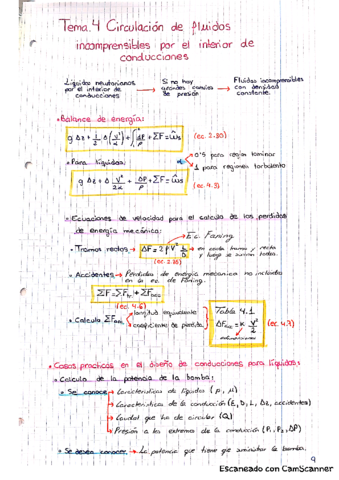 Tema.4 Circulación de fluidos
incomprensibles por el interior de
conducciones
Líquidos neutonianos por el interior de conducciones → Si no hay grandes cambios de presión → Fluidos incomprensibles con densidad constante.
• Balance de energía:
g Δz + 1/2 Δ(V²/α) + ∫ dP/ρ + ΣF = Ŵs (ec. 2.30)
• Para líquidos: α → 0'5 para region laminar
1 para regiones turbulento
g Δz + Δ V²/2α + ΔP/ρ + ΣF = Ŵs (ec. 4.3)
• Ecuaciones de velocidad para el calculo de las perdidas
de energía mecánica: Ec. Faning.
• Tramos rectos → ΔF = 2 f V² L/D → en cada tramo recto
y luego se suman todas.
• Accidentes → Perdidas de energía mecanica no incluidas
en la ec. de Faning.
ΣF = ΣFtr + ΣFacc
(ec. 4.6)
• Calcula ΣFacc longitud equivalente
coeficiente de perdida
Tabla 4.1
ΔFacc = K V²/2 (ec. 4.7)
• Casos practicos en el diseño de conducciones para líquidos:
• Calculo de la potencia de la bomba:
• Se conoce → Características de líquidos (ρ, μ)
→ Características de la conducción (E, D, L, Δz, accidentes)
→ Caudal que ha de circular (Q)
→ Presión a los extremos de la conducción (P₁, P₂, ΔP)
• Se desea conocer → La potencia que tiene que suministrar la bomba.
Escaneado con CamScanner